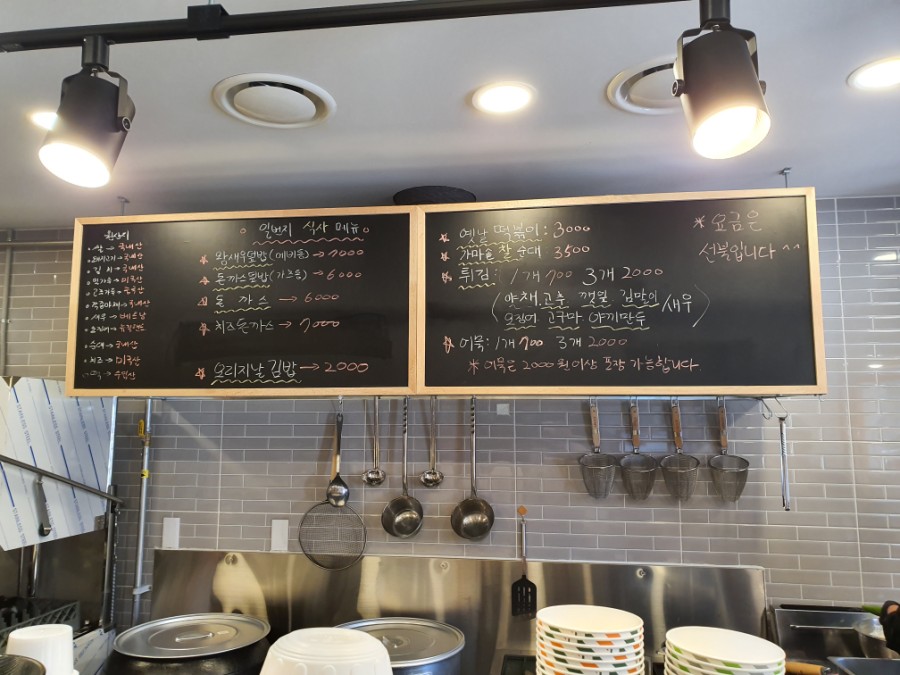 원산지
쌀 → 국내산
돼지고기 → 국내산
김치 → 국내산
→ 미국산
새우 → 베트남
순대 → 국내산
치즈 → 미국산
→ 수입산
일번지 식사 메뉴
왕새우덮밥(에비동) → 7000
돈까스덮밥(가츠동) → 6000
돈 까 스 → 6000
치즈돈까스 → 7000
오리지날 김밥 → 2000
옛날 떡볶이 : 3000
가마솥 찰순대 3500
튀김 : 1개 700 3개 2000
(야채, 고추 깻잎 김말이 새우
오징어 고구마 야끼만두)
어묵 : 1개 700 3개 2000
※ 어묵은 2000원 이상 포장 가능합니다.
※ 요금은
선불입니다 ^^